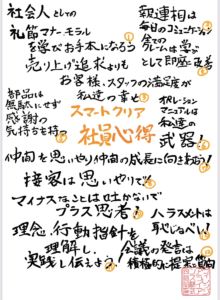 社会人としての
礼節マナーモラル
を学びお手本になろう
報連相は
毎日のコミュニケーション
全ては学ぶ
として即座に改善
売り上げ追求よりも
お客様、スタッフの満足度が
私達の幸せ
部品は
無駄にせず
感謝の
気持ちを持つ
スマートクリア
社員心得
オペレーション
マニュアルは
私達の
武器!
仲間を思いやり仲間の成長に向き合おう!
接客は思いやりで
マイナスなことは口に出さないで
プラス思考!
ハラスメントは
恥じるべし!
理念、行動指針を
理解し、
実践し伝えよう
会議の発言は
積極的に提案質問